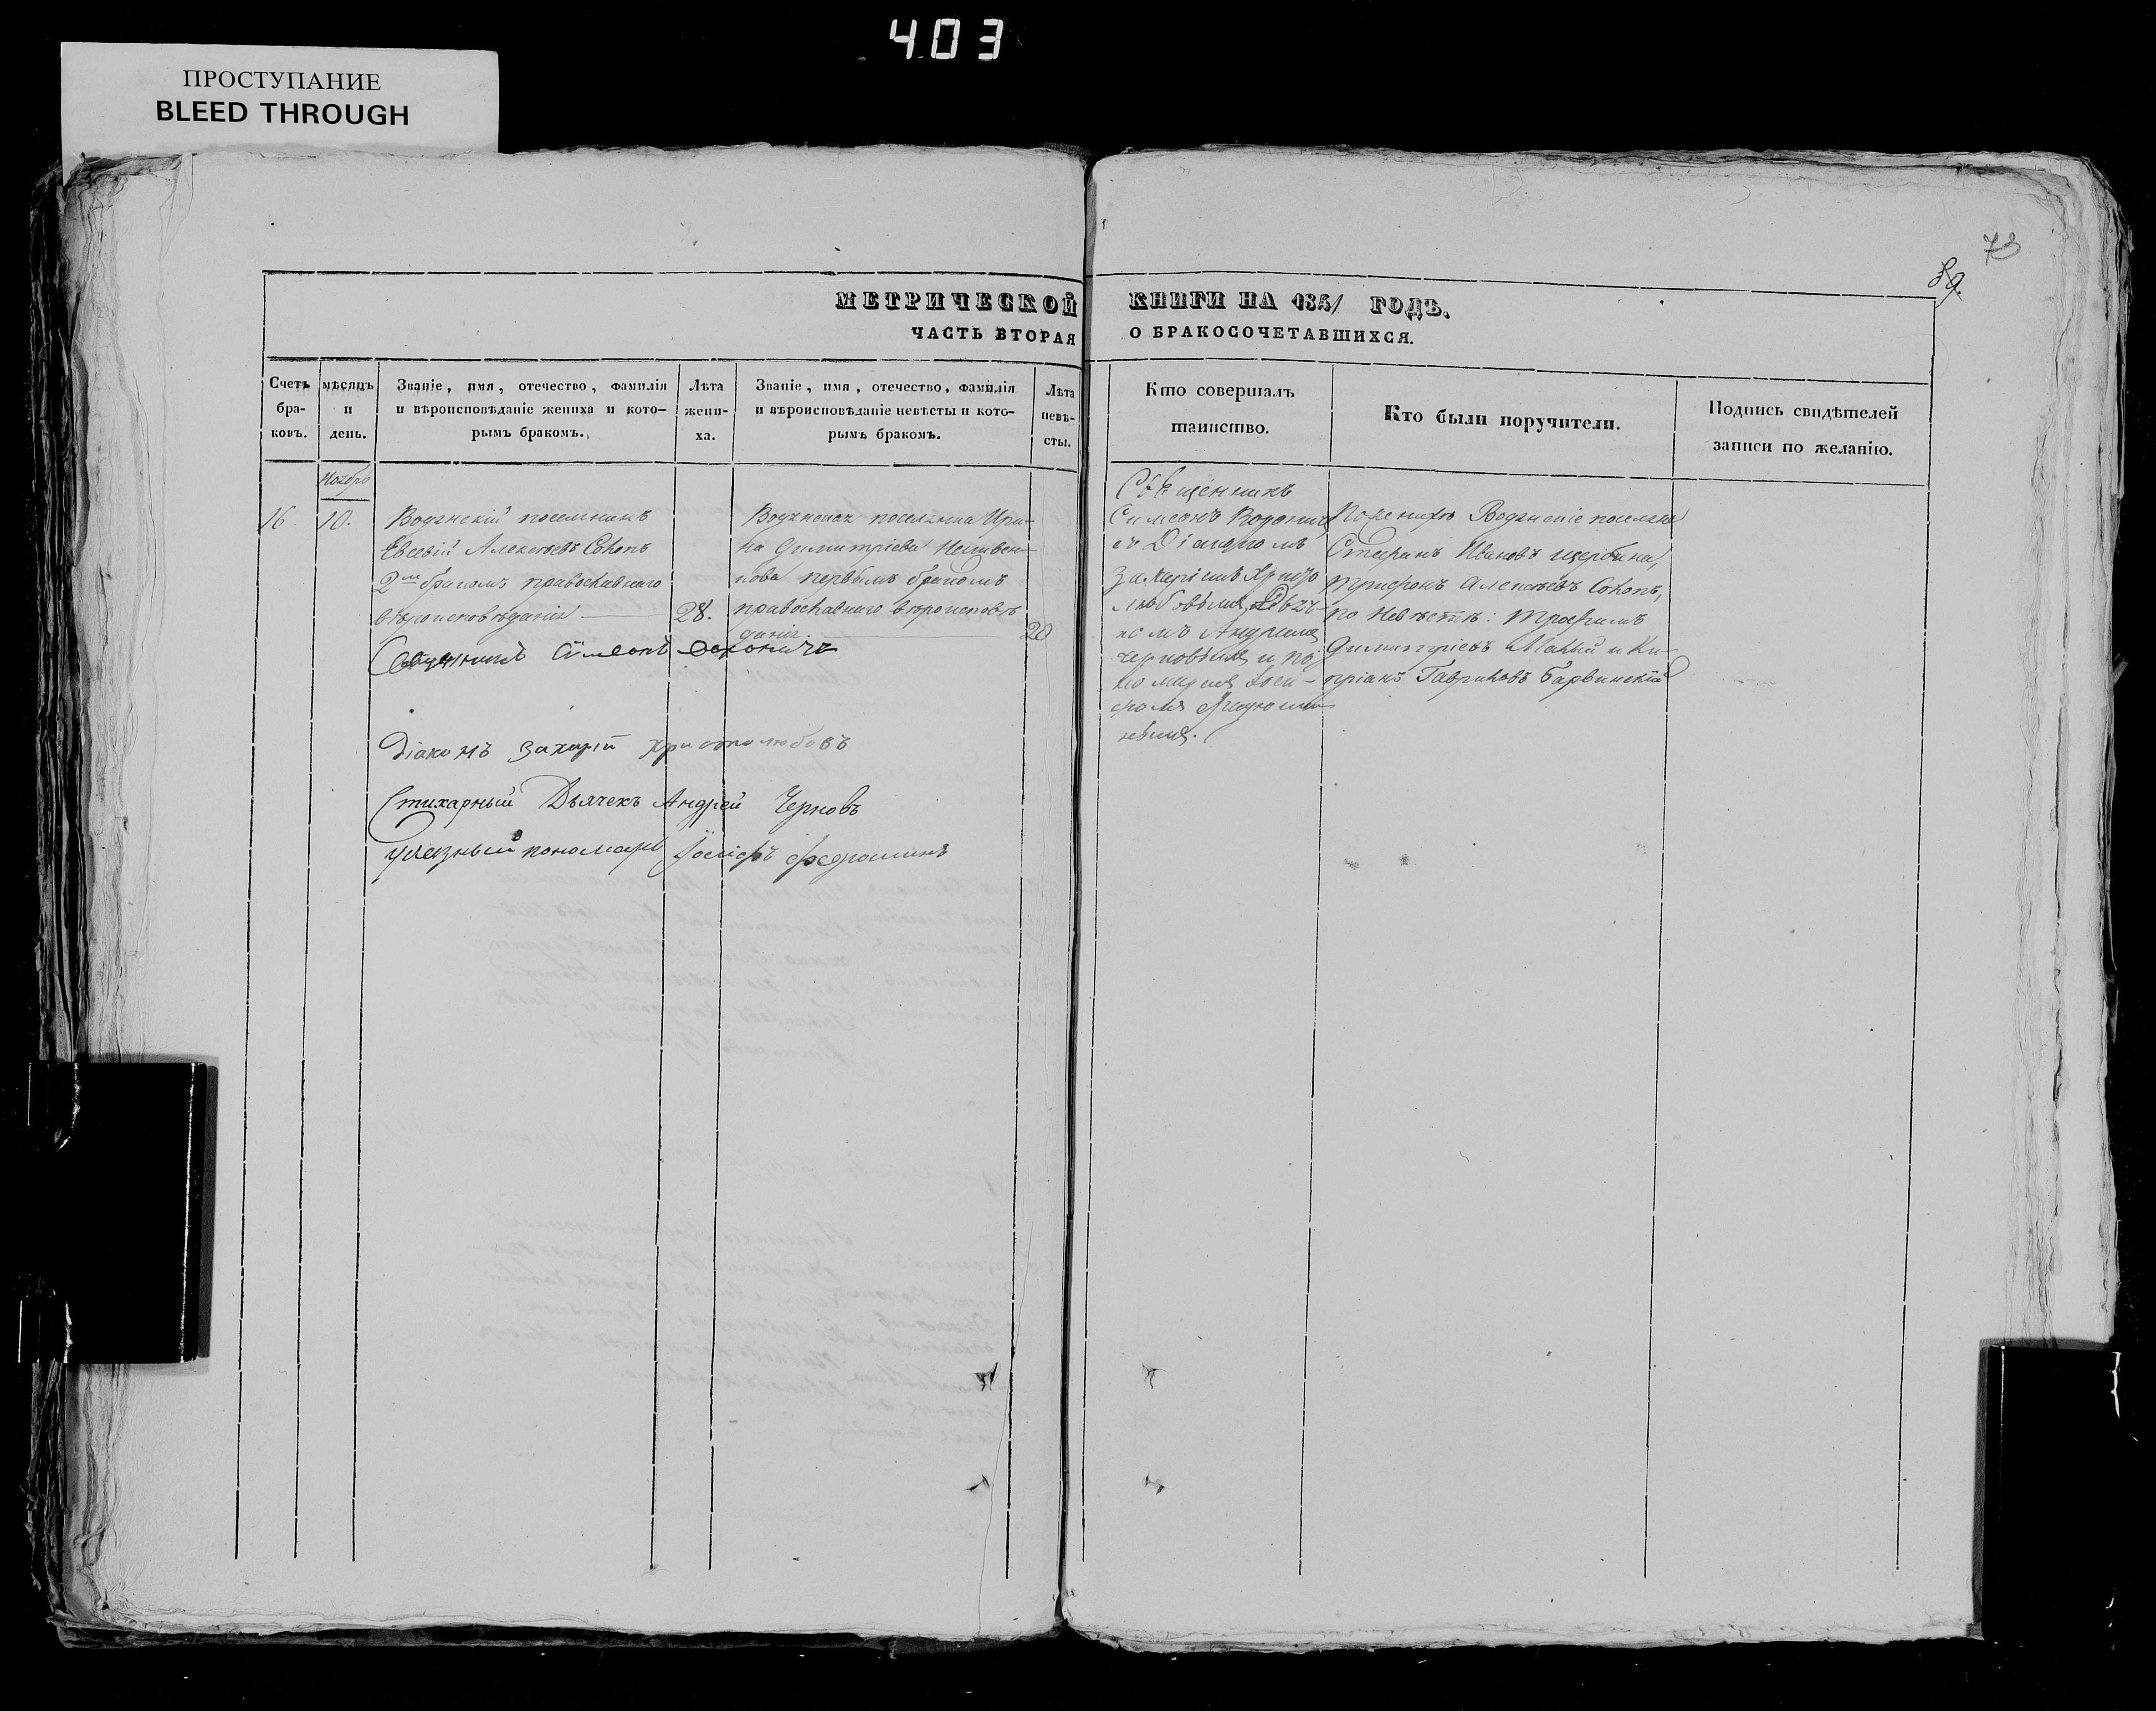 403
ПРОСТУПАНИЕ
BLEED THROUGH
73
89.
МЕТРИЧЕСКОЙ КНИГИ НА 1851 ГОДЪ.
ЧАСТЬ ВТОРАЯ О БРАКОСОЧЕТАВШИХСЯ.
Счетъ бра-ковъ.
мѣсяцъ и день.
Званіе, имя, отечество, фамилія
и вѣроисповѣданіе жениха и кото-
рымъ бракомъ.
Лѣта жени-ха.
Званіе, имя, отечество, фамилія
и вѣроисповѣданіе невѣсты и кото-
рымъ бракомъ.
Лѣта невѣ-сты.
Кто совершалъ
таинство.
Кто были поручители.
Подпись свидѣтелей
записи по желанію.
Ноябрь
16 10.
поселянинъ
Евсевій Алексѣевъ
2мъ бракомъ православнаго
вѣроисповѣданія
28.
поселянка Ири-
на Димитріева
первымъ бракомъ
православнаго вѣроисповѣ-
данія
20
Священникъ
Симеонъ
съ Діакономъ
Захаріемъ Христо
любовымъ, Дьяч-
комъ Андреемъ
Черновымъ и по-
номаремъ Іоси-
фомъ
По женихѣ поселяне
Стефанъ Ивановъ Щербина,
Трифонъ Алексѣевъ
по невѣстѣ: Трофимъ
Димитріевъ и Ки-
пріанъ Гавриловъ Барвинскій
Священникъ Симеонъ
Діаконъ Захарій Христолюбовъ
Стихарный Дьячекъ Андрей Черновъ
пономарь Іосифъ